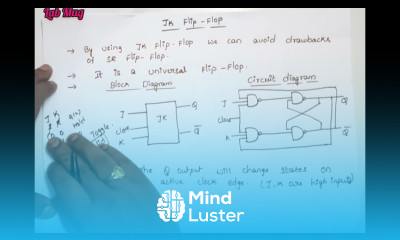 Lab Mug
JK Flip-Flop
→ By using JK Flip-Flop we can avoid drawbacks
of SR Flip-Flop.
→ It is a universal Flip-Flop.
→ Block Diagram
Circuit diagram
J
clock
K
JK
Q
Q̅
J
clock
K
Q
Q̅
J K
0 0
Toggle
the Q output will change states on
active clock edge (J, K are high inputs)
Mind
Luster